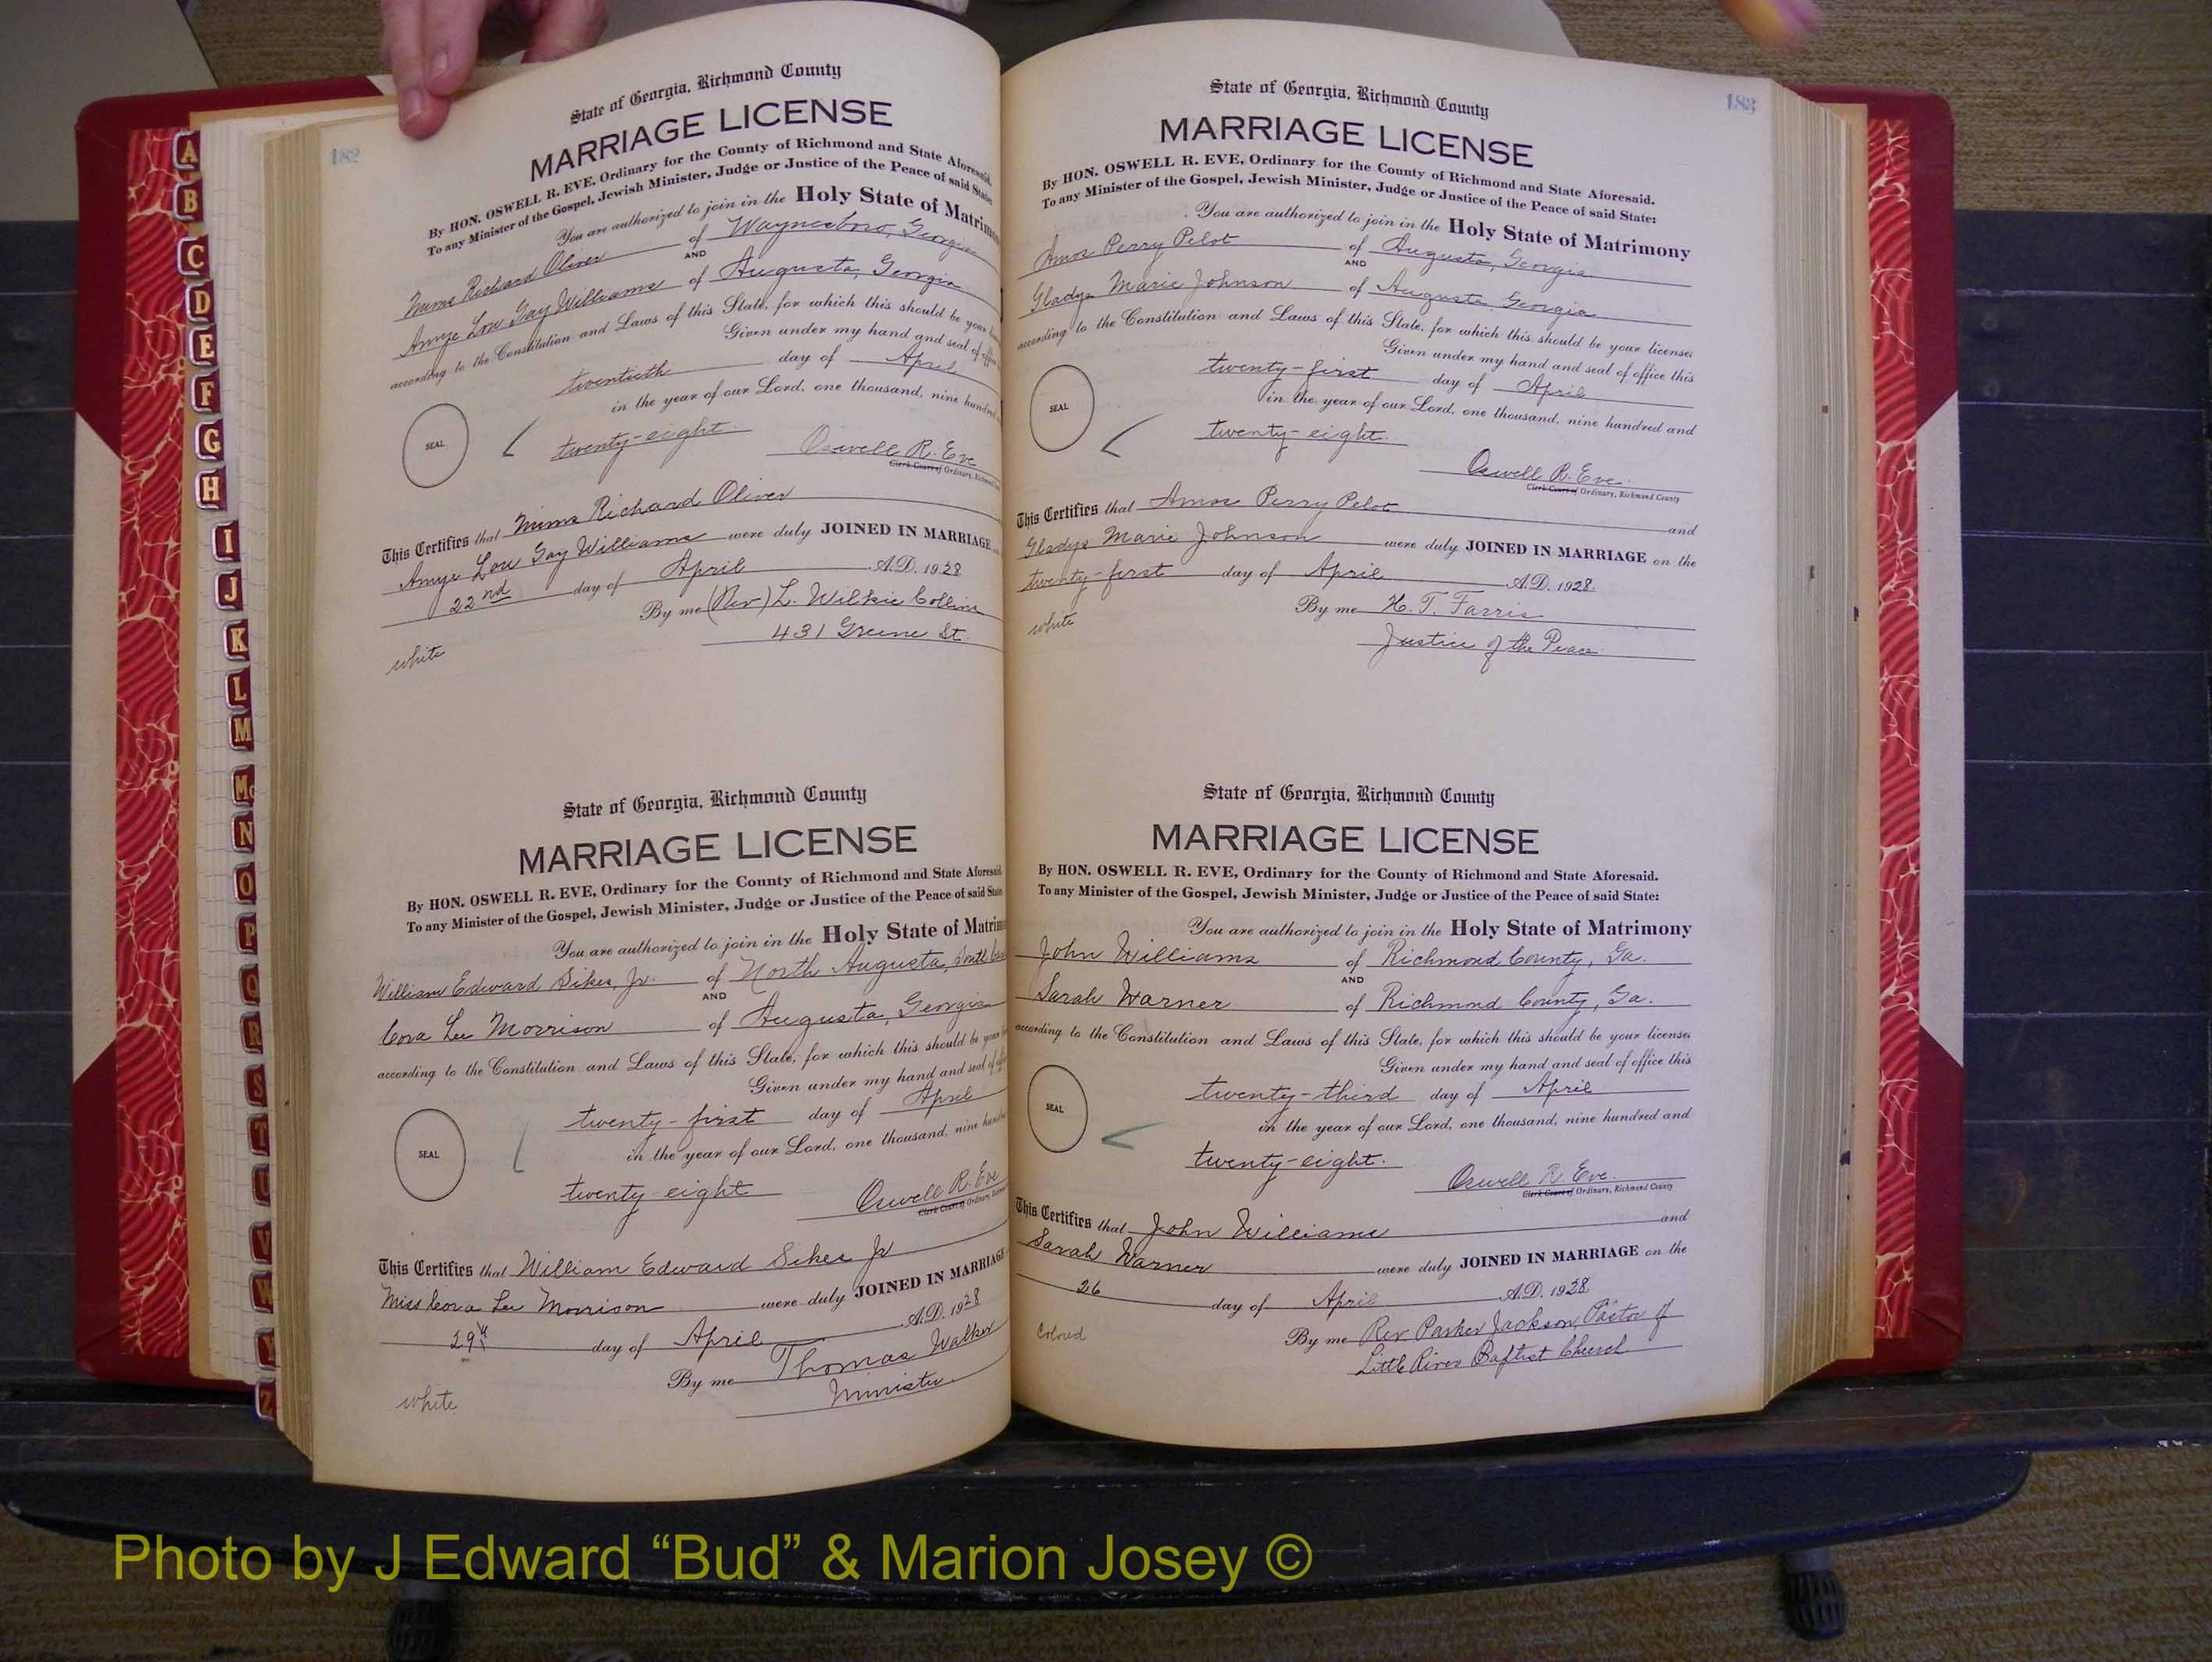 182
State of Georgia, Richmond County
MARRIAGE LICENSE
By HON. OSWELL R. EVE, Ordinary for the County of Richmond and State Aforesaid.
To any Minister of the Gospel, Jewish Minister, Judge or Justice of the Peace of said State
You are authorized to join in the Holy State of Matrimon
Mims Richard Oliver of Waynesboro, Georgia
AND
Amye Lou Gay Williams of Augusta, Georgia
according to the Constitution and Laws of this State, for which this should be your
Given under my hand and seal of
twentieth day of April
in the year of our Lord, one thousand, nine hundred
SEAL
twenty-eight
Oswell R. Eve
Clerk Court of Ordinary, Richmond
This Certifies that Mims Richard Oliver
Amye Lou Gay Williams were duly JOINED IN MARRIAGE
22nd day of April A.D. 1928
By me (Rev) L. Wilkie Collins
431 Greene St.
white
State of Georgia, Richmond County
MARRIAGE LICENSE
By HON. OSWELL R. EVE, Ordinary for the County of Richmond and State Aforesaid.
To any Minister of the Gospel, Jewish Minister, Judge or Justice of the Peace of said State
You are authorized to join in the Holy State of Matrim
William Edward Sikes, Jr. of North Augusta, South
AND
Cora Lee Morrison of Augusta, Georgia
according to the Constitution and Laws of this State, for which this should be your
Given under my hand and seal of
twenty-first day of April
in the year of our Lord, one thousand, nine
SEAL
twenty eight
Oswell R. Eve
Clerk Court of Ordinary,
This Certifies that William Edward Sikes Jr
Miss Cora Lee Morrison were duly JOINED IN MARRIAGE
29th day of April A.D. 1928
By me Thomas Walker
Minister.
white
183
State of Georgia, Richmond County
MARRIAGE LICENSE
By HON. OSWELL R. EVE, Ordinary for the County of Richmond and State Aforesaid.
To any Minister of the Gospel, Jewish Minister, Judge or Justice of the Peace of said State:
You are authorized to join in the Holy State of Matrimony
Amos Perry Pelot of Augusta, Georgia
AND
Gladys Marie Johnson of Augusta, Georgia
according to the Constitution and Laws of this State, for which this should be your license;
Given under my hand and seal of office this
twenty-first day of April
in the year of our Lord, one thousand, nine hundred and
SEAL
twenty-eight.
Oswell R. Eve.
Clerk Court of Ordinary, Richmond County
This Certifies that Amos Perry Pelot and
Gladys Marie Johnson were duly JOINED IN MARRIAGE on the
twenty-first day of April A.D. 1928.
By me H. T. Farris
Justice of the Peace
white
State of Georgia, Richmond County
MARRIAGE LICENSE
By HON. OSWELL R. EVE, Ordinary for the County of Richmond and State Aforesaid.
To any Minister of the Gospel, Jewish Minister, Judge or Justice of the Peace of said State:
You are authorized to join in the Holy State of Matrimony
John Williams of Richmond County, Ga.
AND
Sarah Warner of Richmond County, Ga.
according to the Constitution and Laws of this State, for which this should be your license;
Given under my hand and seal of office this
twenty-third day of April
in the year of our Lord, one thousand, nine hundred and
SEAL
twenty-eight.
Oswell R. Eve.
Clerk Court of Ordinary, Richmond County
This Certifies that John Williams and
Sarah Warner were duly JOINED IN MARRIAGE on the
26 day of April A.D. 1928.
By me Rev Parker Jackson, Pastor of
Little River Baptist Church
Colored
A
B
C
D
E
F
G
H
I
J
K
L
M
Mc
N
O
P
Q
R
S
T
U
V
W
Y
Z
Photo by J Edward “Bud” & Marion Josey ©